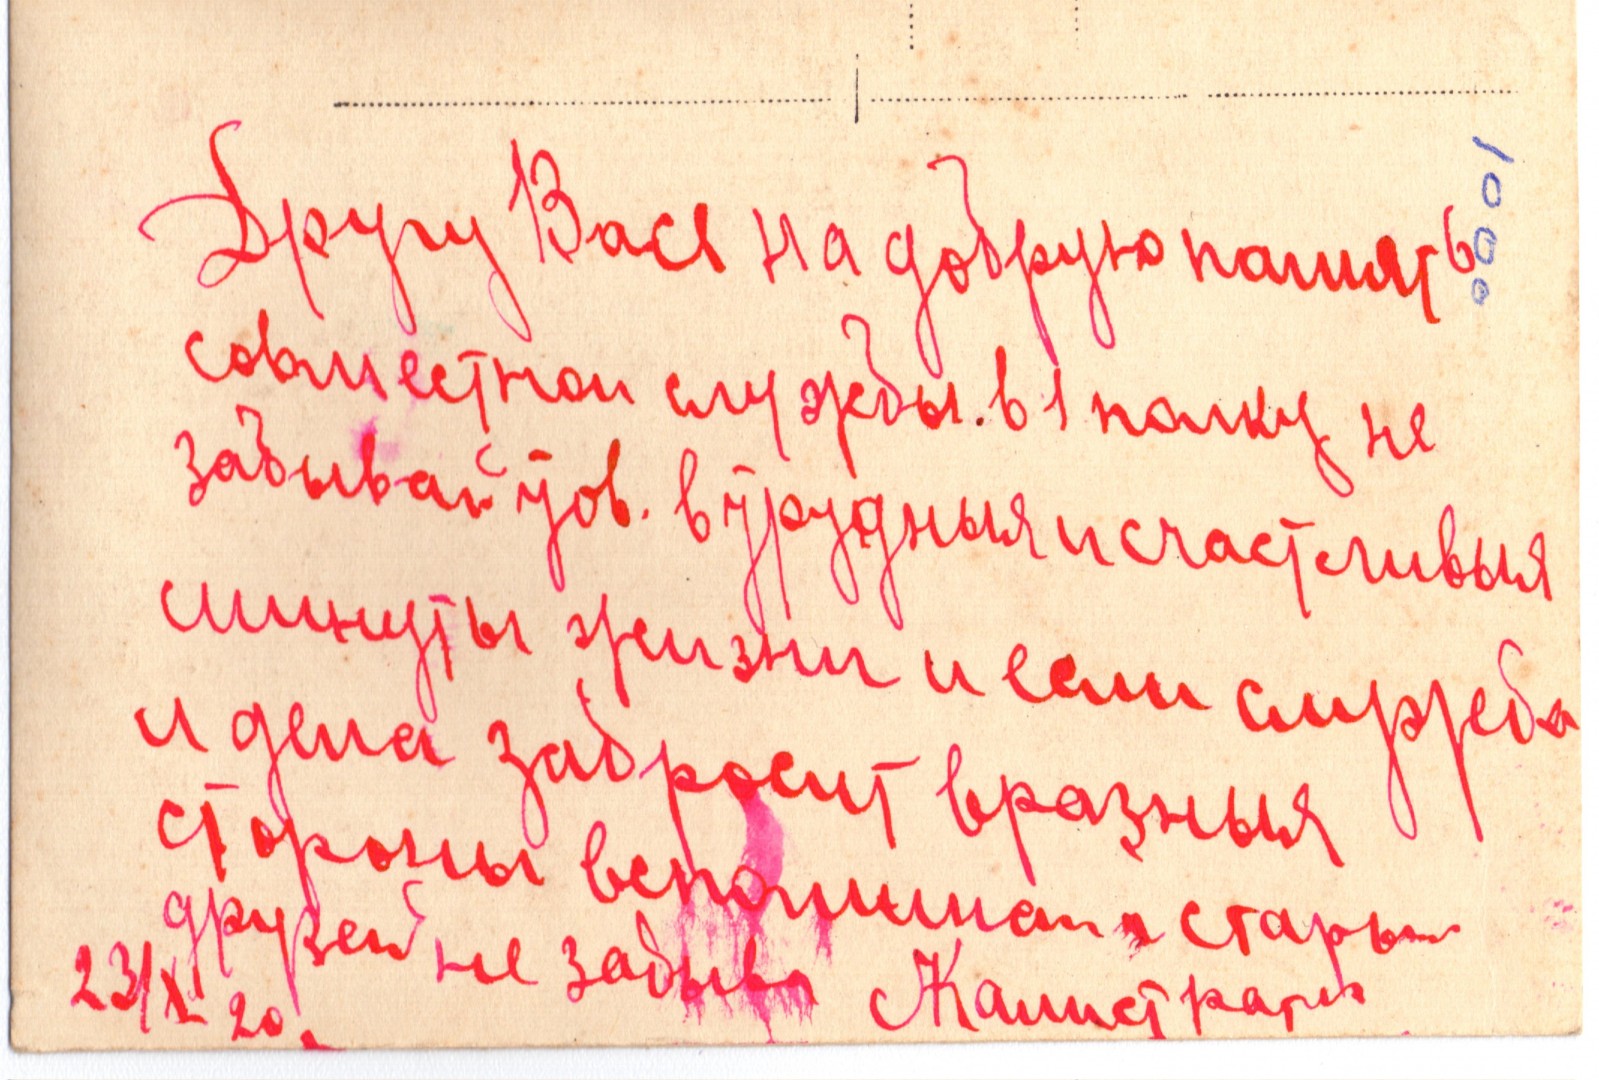 Другу Вася на добрую память
совместной службы. в 1 полку не
забывай тов. в трудныя и счастливыя
минуты жизни и если служеба
и дела забросит в разныя
стороны вспоминай и стары
друзей не забыва
23/X 20
1000